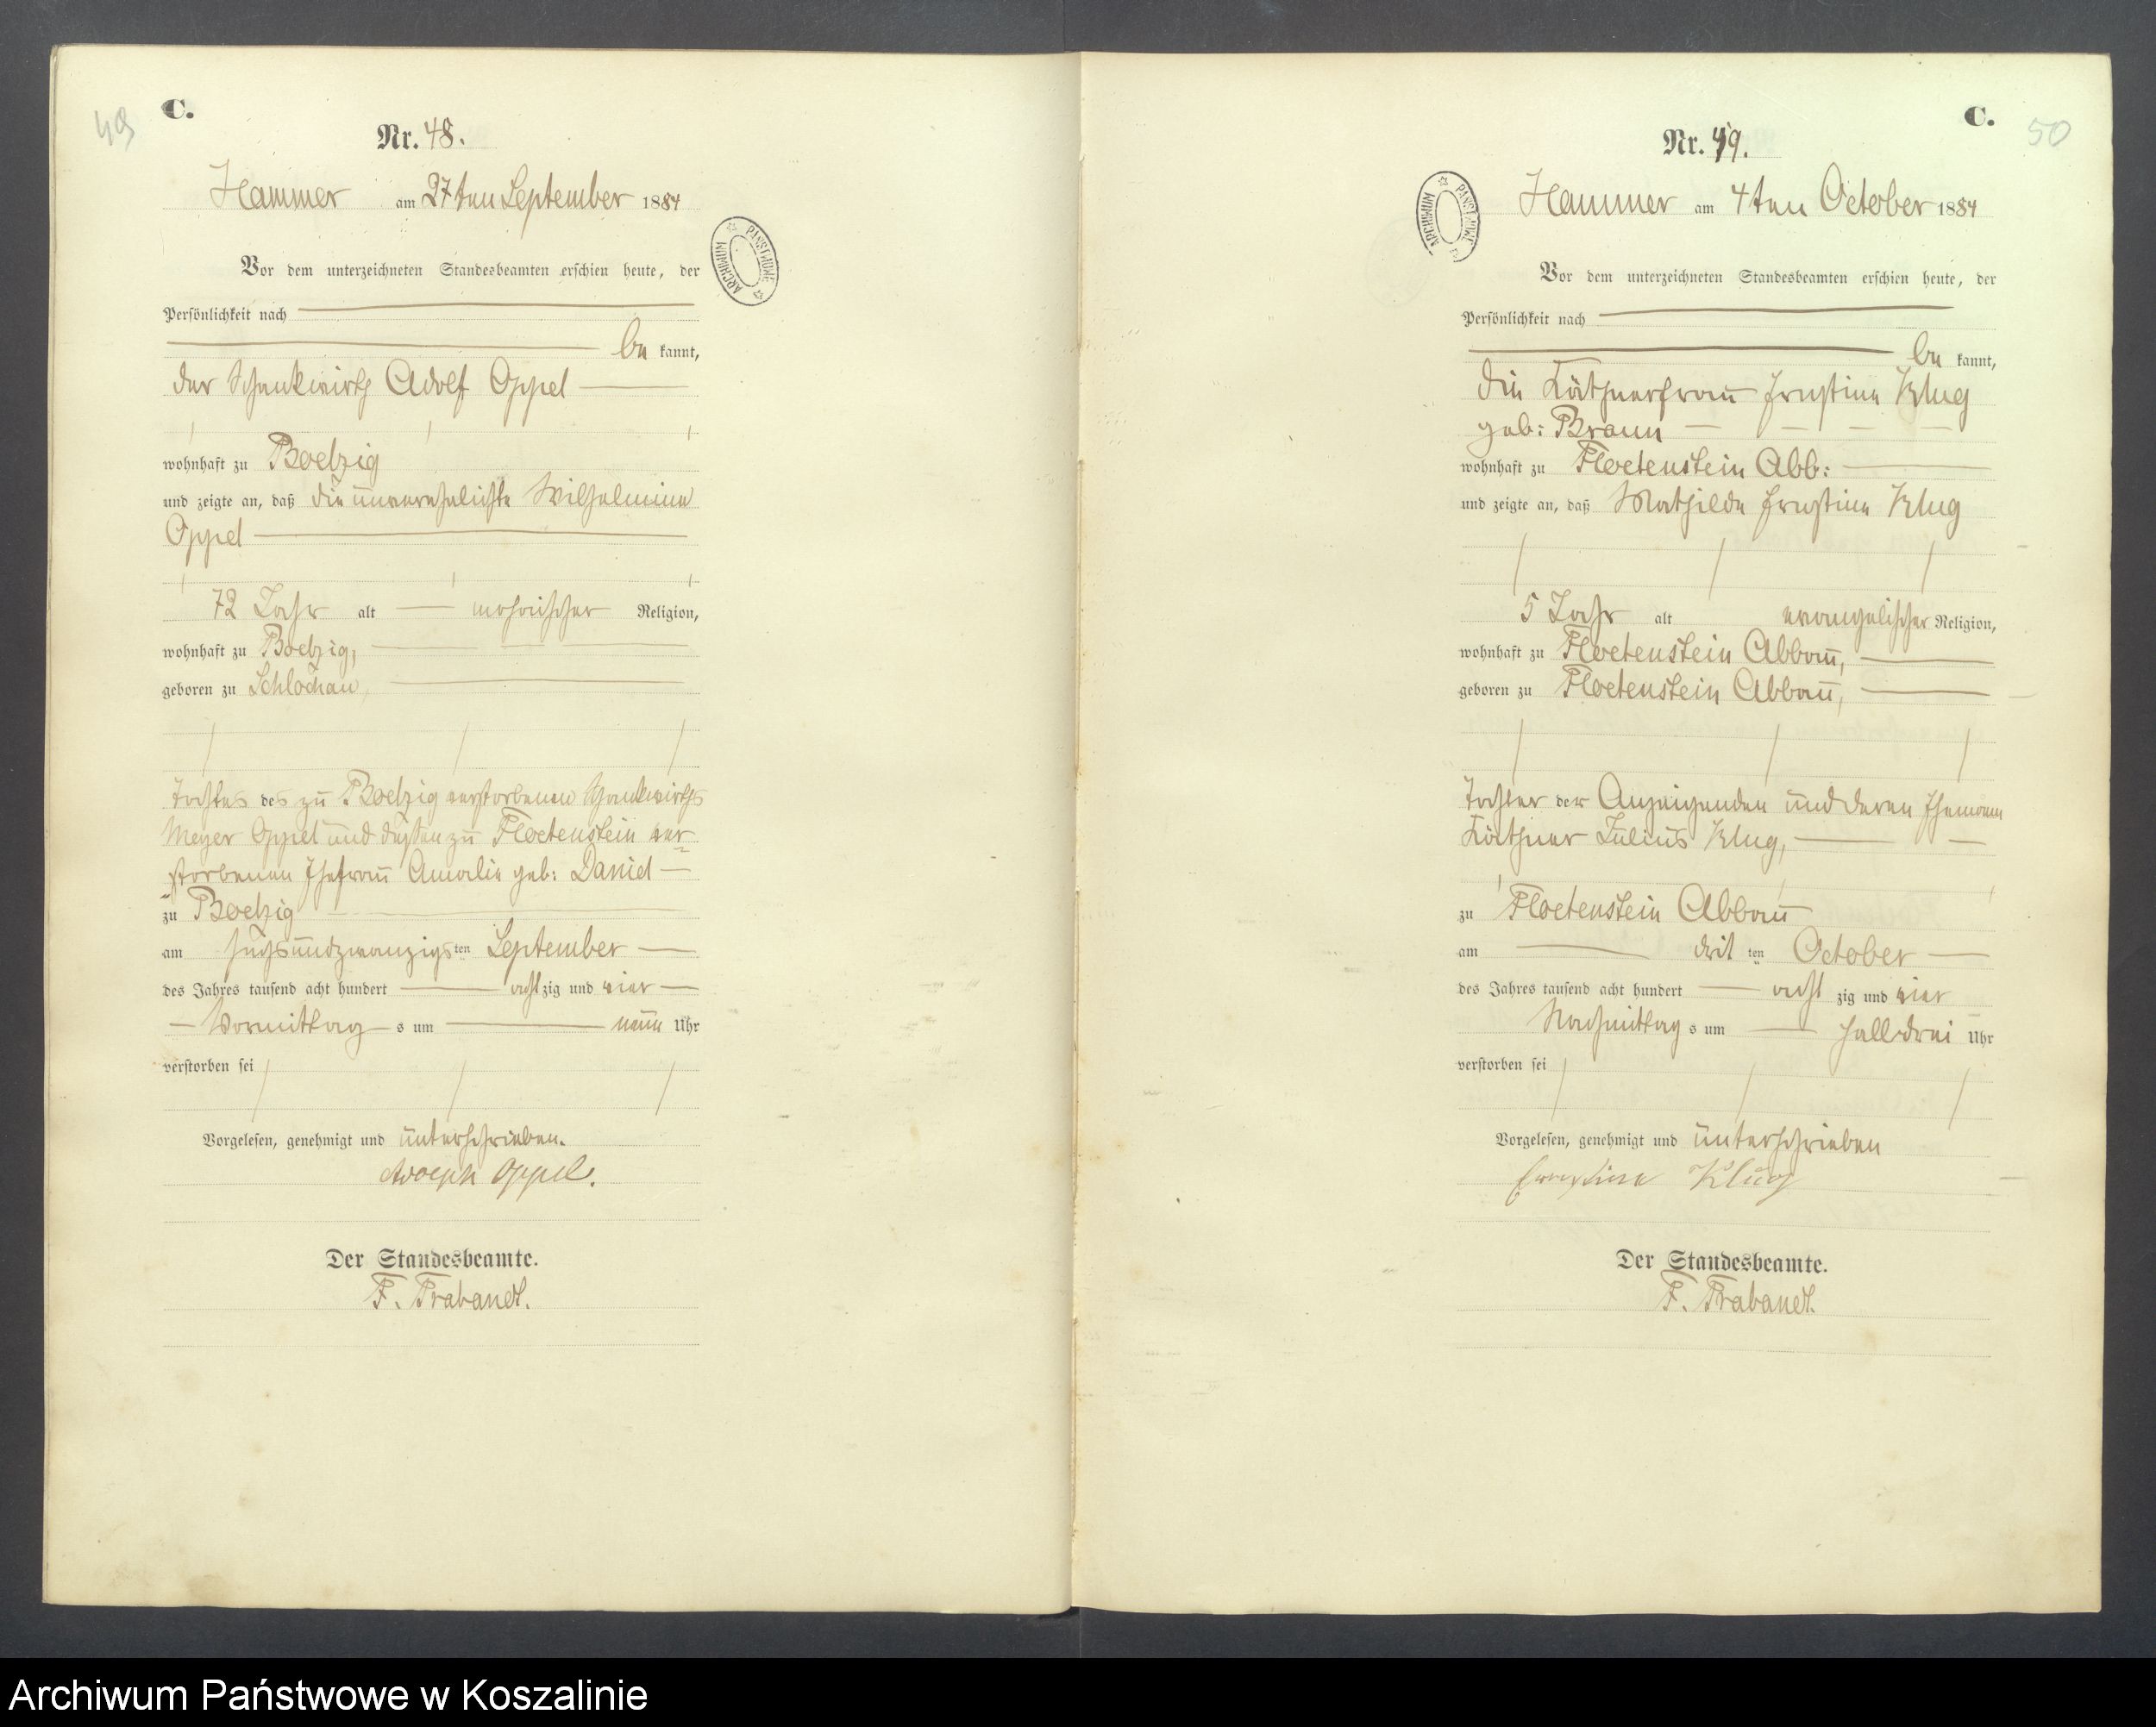 49
C.
Nr. 48.
Hammer am 27ten September 1884
Vor dem unterzeichneten Standesbeamten erschien heute, der
Persönlichkeit nach
be kannt,
der Schankwirth Adolf Oppel
wohnhaft zu Boelzig
und zeigte an, daß die unverehelichte Wilhelmine
Oppel
72 Jahr alt mosaischer Religion,
wohnhaft zu Boelzig,
geboren zu Schlochau,
Tochter des zu Boelzig verstorbenen Schankwirths
Meyer Oppel und dessen zu Floetenstein ver-
storbenen Ehefrau Amalie geb: Daniel
zu Boelzig
am sechsundzwanzigsten September
des Jahres tausend acht hundert achtzig und vier
Vormittag s um neun Uhr
verstorben sei
Vorgelesen, genehmigt und unterschrieben.
Adolph Oppel.
Der Standesbeamte.
F. Trabandt.
C.
50
Nr. 49.
Hammer am 4ten October 1884
Vor dem unterzeichneten Standesbeamten erschien heute, der
Persönlichkeit nach
be kannt,
die Käthnerfrau Ernstine Klug
geb: Braun
wohnhaft zu Floetenstein Abb:
und zeigte an, daß Mathilde Ernstine Klug
5 Jahr alt evangelischer Religion,
wohnhaft zu Floetenstein Abbau,
geboren zu Floetenstein Abbau,
Tochter der Anzeigenden und deren Ehemann
Käthner Julius Klug,
zu Floetenstein Abbau
am drit ten October
des Jahres tausend acht hundert acht zig und vier
Nachmittag s um halb drei Uhr
verstorben sei
Vorgelesen, genehmigt und unterschrieben
Ernstine Klug
Der Standesbeamte.
F. Trabandt.
ARCHIWUM PAŃSTWOWE
ARCHIWUM PAŃSTWOWE
Archiwum Państwowe w Koszalinie